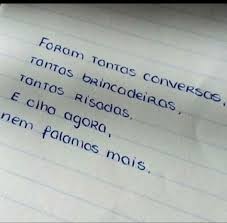 Foram tantas conversas,
tantas brincadeiras,
tantas risadas.
E olha agora,
nem falamos mais.